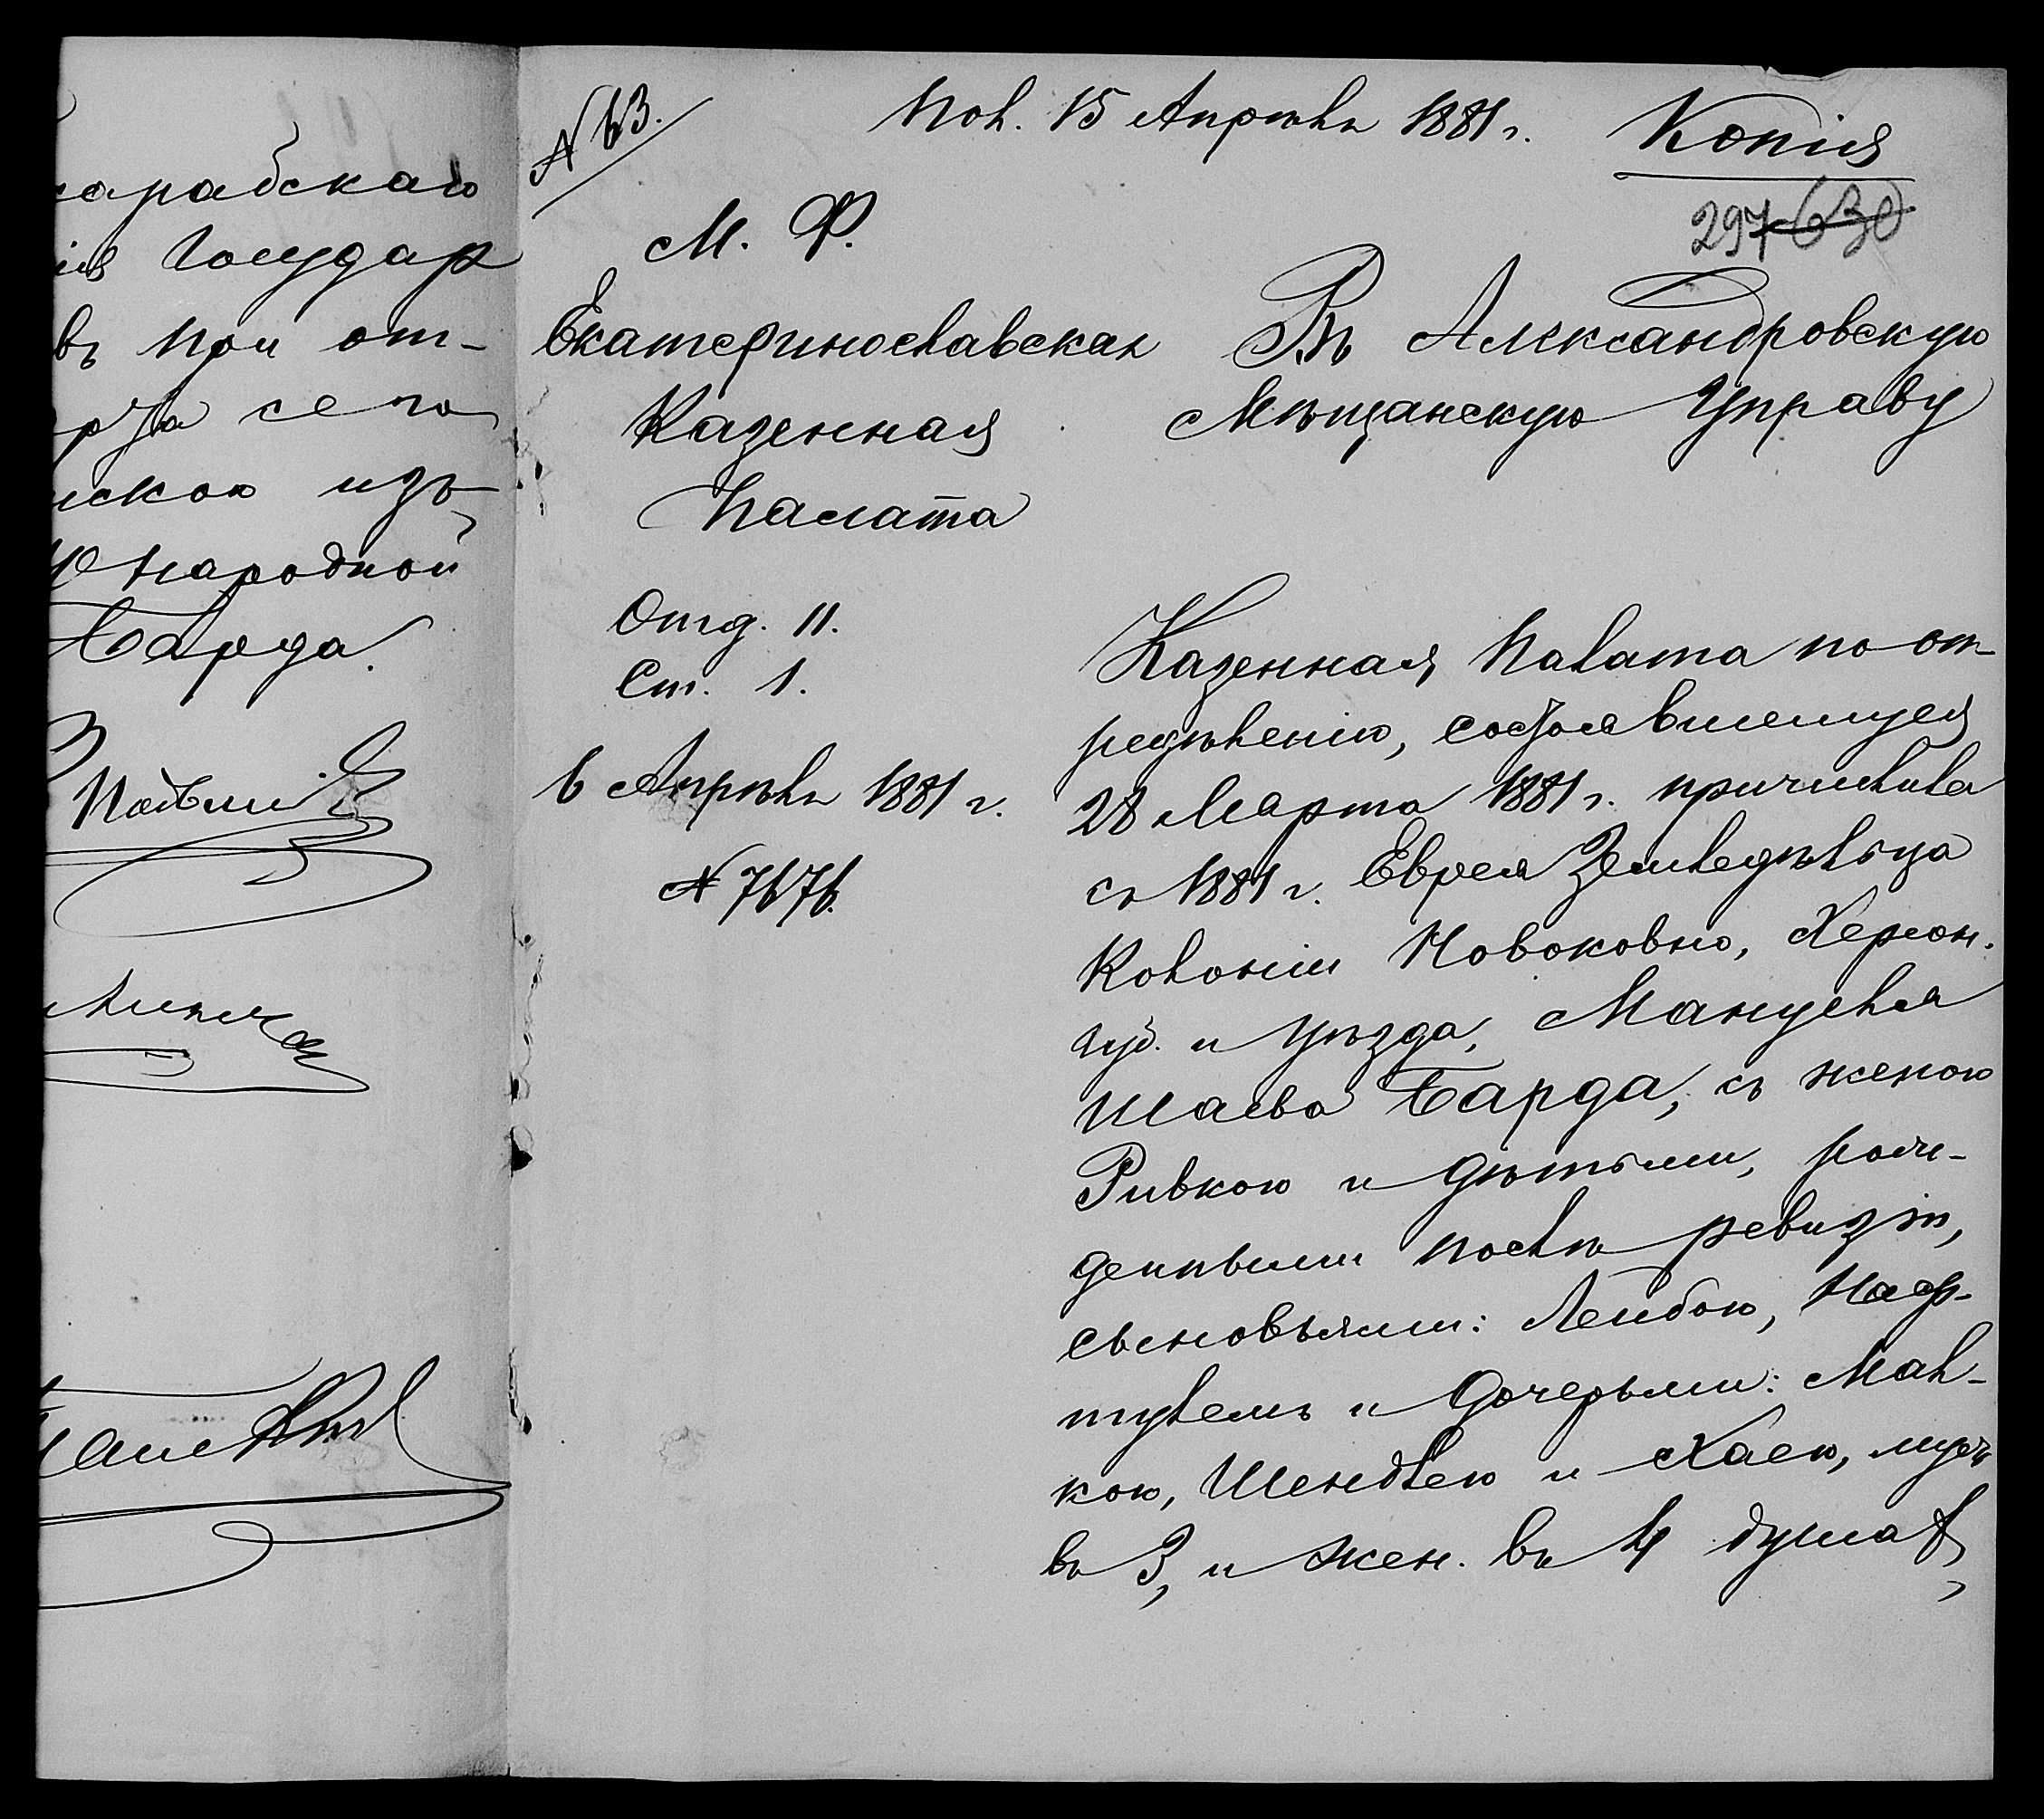 арабскаго
ія Государ
въ при от-
рда сего
скою изъ
народной
Барда.
№ 63.
Пол. 15 Апрѣля 1881 г.
Копія
297 630
М. Ф.
Екатеринославская
Казенная
Палата
Отд. II.
Ст. 1.
6 Апрѣля 1881 г.
№ 7676.
Въ Александровскую
Мѣщанскую Управу
Казенная Палата по оп-
редѣленію, состоявшемуся
28 Марта 1881 г. причислила
съ 1881 г. Еврея Земледѣльца
Колоніи Новоковно, Херсон.
губ. и уѣзда, Мануеля
Шаева Барда, съ женою
Ривкою и дѣтьми, рож-
денными послѣ ревизіи,
сыновьями: Лейбою, Наф-
тулемъ и дочерьми: Мал-
кою, Шендлею и Хаею, муж.
въ 3, и жен. въ 4 душах,